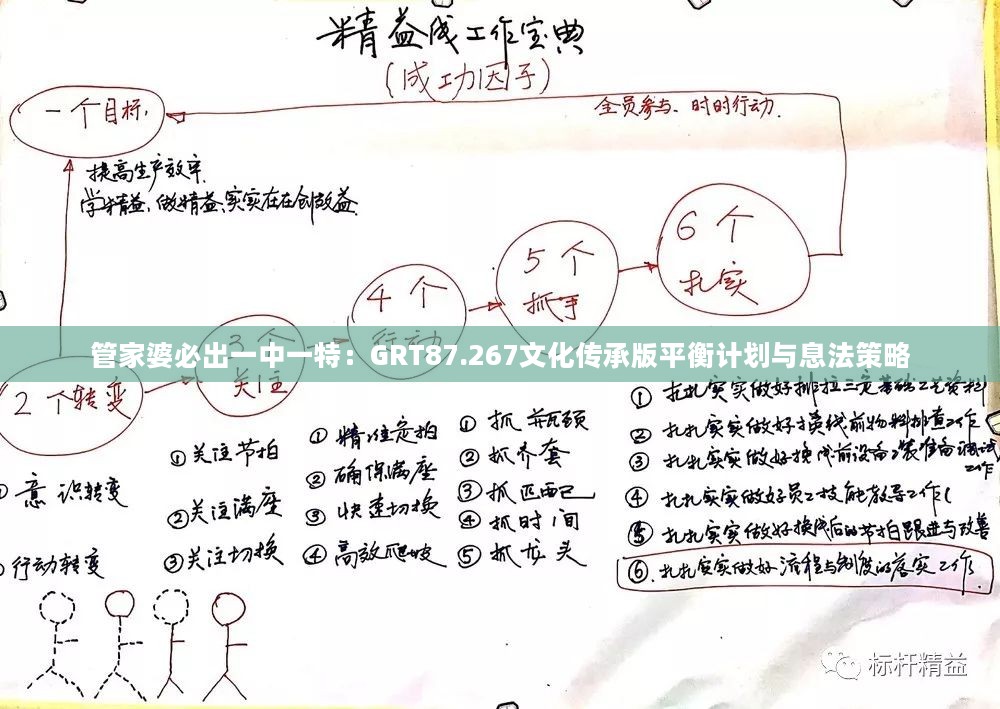 精益线工作宝典
（成功因子）
一个目标,
全员参与、时时行动.
提高生产效率.
学精益,做精益,实实在在创效益.
6个
扎实
5个
抓手
4个
行动
3个
关注
管家婆必出一中一特：GRT87.267文化传承版平衡计划与息法策略
2个转变
意识转变
行动转变
①关注节拍
②关注满座
③关注切换
①精准定拍
②确保满座
③快速切换
④高效爬坡
①抓瓶颈
②抓齐套
③抓匹配
④抓时间
⑤抓龙头
①扎扎实实做好排拉三定基础工艺资料
②扎扎实实做好换线前物料排查工作
③扎扎实实做好换线前设备工装准备调试
工作
④扎扎实实做好员工技能教导工作
⑤扎扎实实做好换线后的节拍跟进与改善
⑥.扎扎实实做好流程与制度的落实工作.
标杆精益